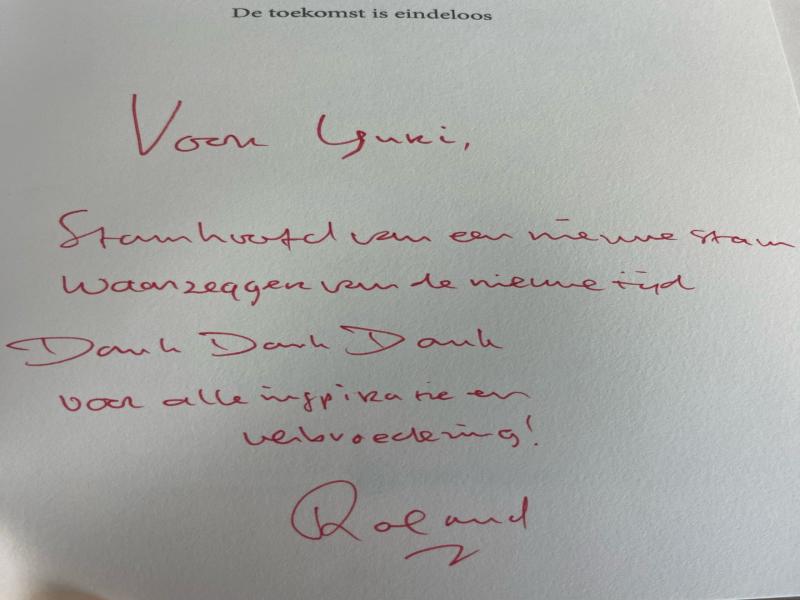 De toekomst is eindeloos
Voor Yuki,
Stamhoofd van een nieuwe stam
Waarzegger van de nieuwe tijd
Dank Dank Dank
voor alle inspiratie en
verbroedering!
Roland